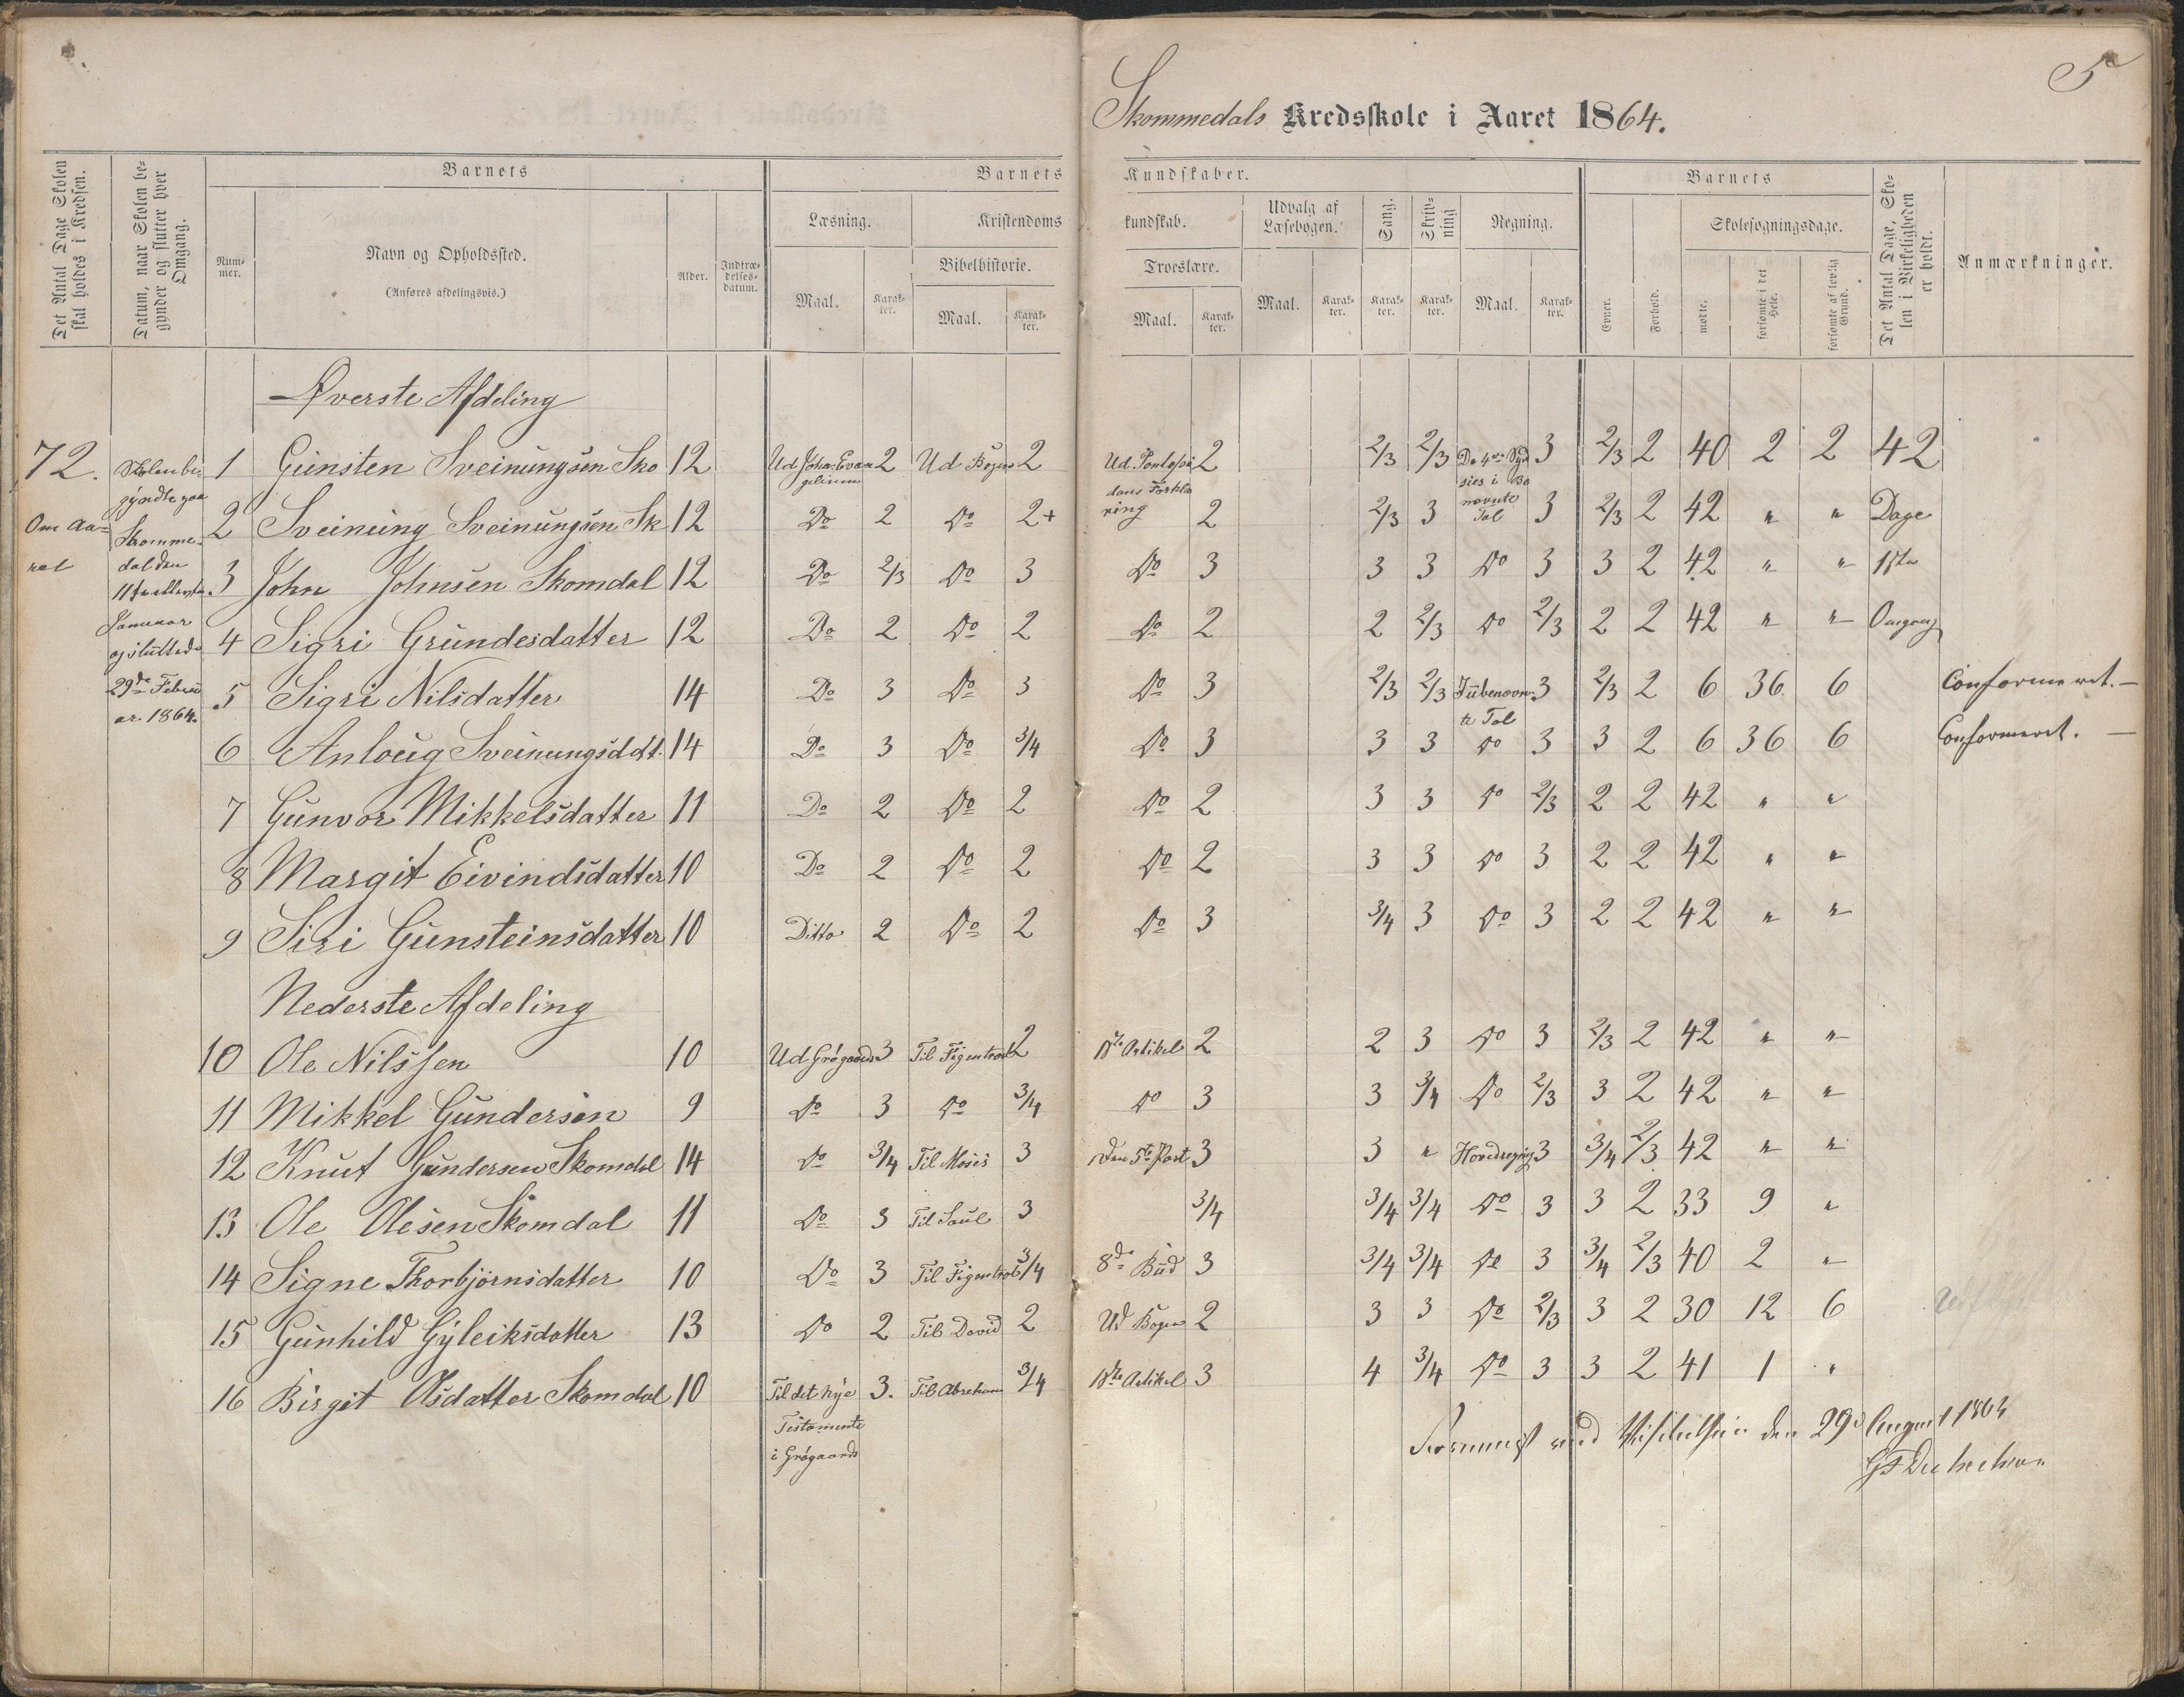 5
Skommedals Kredsskole i Aaret 1864.
Det Antal Dage Skolen skal holdes i Kredsen.
Datum, naar Skolen begynder og slutter hver Omgang.
Barnets
Nummer.
Navn og Opholdssted.
(Anføres afdelingsvis.)
Alder.
Indtrædelses-datum.
Barnets Kundskaber.
Læsning.
Maal.
Karakter.
Kristendomskundskab.
Bibelhistorie.
Maal.
Karakter.
Troeslære.
Maal.
Karakter.
Udvalg af Læsebogen.
Maal.
Karakter.
Sang.
Karakter.
Skrivning
Karakter.
Regning.
Maal.
Karakter.
Barnets
Evner.
Forhold.
Skolesøgningsdage.
mødte.
forsømte i det Hele.
forsømte af lovlig Grund.
Det Antal Dage, Skolen i Virkeligheden er holdt.
Anmærkninger.
Øverste Afdeling
72. Om Aaret
Skolen begyndte paa Skommedal den 11te Januar og sluttede 29de Februar. 1864.
1 Gunsten Sveinungsen Sko 12 Ud Joha. Evangelium 2 Ud Bogen 2 Ud Pontopidans Forklaring 2 2/3 2/3 De 4re i Benævnte Tal 3 2/3 2 40 2 2 42
2 Sveinung Sveinungsen Sk 12 Do 2 Do 2+ 2 2/3 3 3 2/3 2 42 " " Dage
3 John Johnsen Skomdal 12 Do 2/3 Do 3 Do 3 3 3 Do 3 3 2 42 " " 1ste
4 Sigri Grundesdatter 12 Do 2 Do 2 Do 2 2 2/3 Do 2/3 2 2 42 " " Omgang
5 Sigri Nilsdatter 14 Do 3 Do 3 Do 3 2/3 2/3 I ubenævnte Tal 3 2/3 2 6 36 6 Conformeret.
6 Anloug Sveinungsdatt. 14 Do 3 Do 3/4 Do 3 3 3 Do 3 3 2 6 36 6 Conformeret.
7 Gunvor Mikkelsdatter 11 Do 2 Do 2 Do 2 3 3 Do 2/3 2 2 42 " "
8 Margit Eivindsdatter 10 Do 2 Do 2 Do 2 3 3 Do 3 2 2 42 " "
9 Siri Gunsteinsdatter 10 Ditto 2 Do 2 Do 3 3/4 3 Do 3 2 2 42 " "
Nederste Afdeling
10 Ole Nilssen 10 Ud Grøgaards 3 Til Figentræet 2 1ste Artikel 2 2 3 Do 3 2/3 2 42 " "
11 Mikkel Gundersen 9 Do 3 Do 3/4 Do 3 3 3/4 Do 2/3 3 2 42 " "
12 Knut Gundersen Skomdal 14 Do 3/4 Til Moses 3 Den 5te Part 3 3 " Hovedregning 3 3/4 2/3 42 " "
13 Ole Olesen Skomdal 11 Do 3 Til Saul 3 3/4 3/4 3/4 Do 3 3 2 33 9 "
14 Signe Thorbjørnsdatter 10 Do 3 Til Figentræet 3/4 8de Bud 3 3/4 3/4 Do 3 3/4 2/3 40 2 "
15 Gunhild Gyleiksdatter 13 Do 2 Til David 2 Ud Bogen 2 3 3 Do 2/3 3 2 30 12 6
16 Birgit Asdatter Skomdal 10 Til det nye Testamente i Grøgaards 3. Til Abraham 3/4 1ste Artikel 3 4 3/4 Do 3 3 2 41 1 "
ved Visitatsen den 29de August 1864